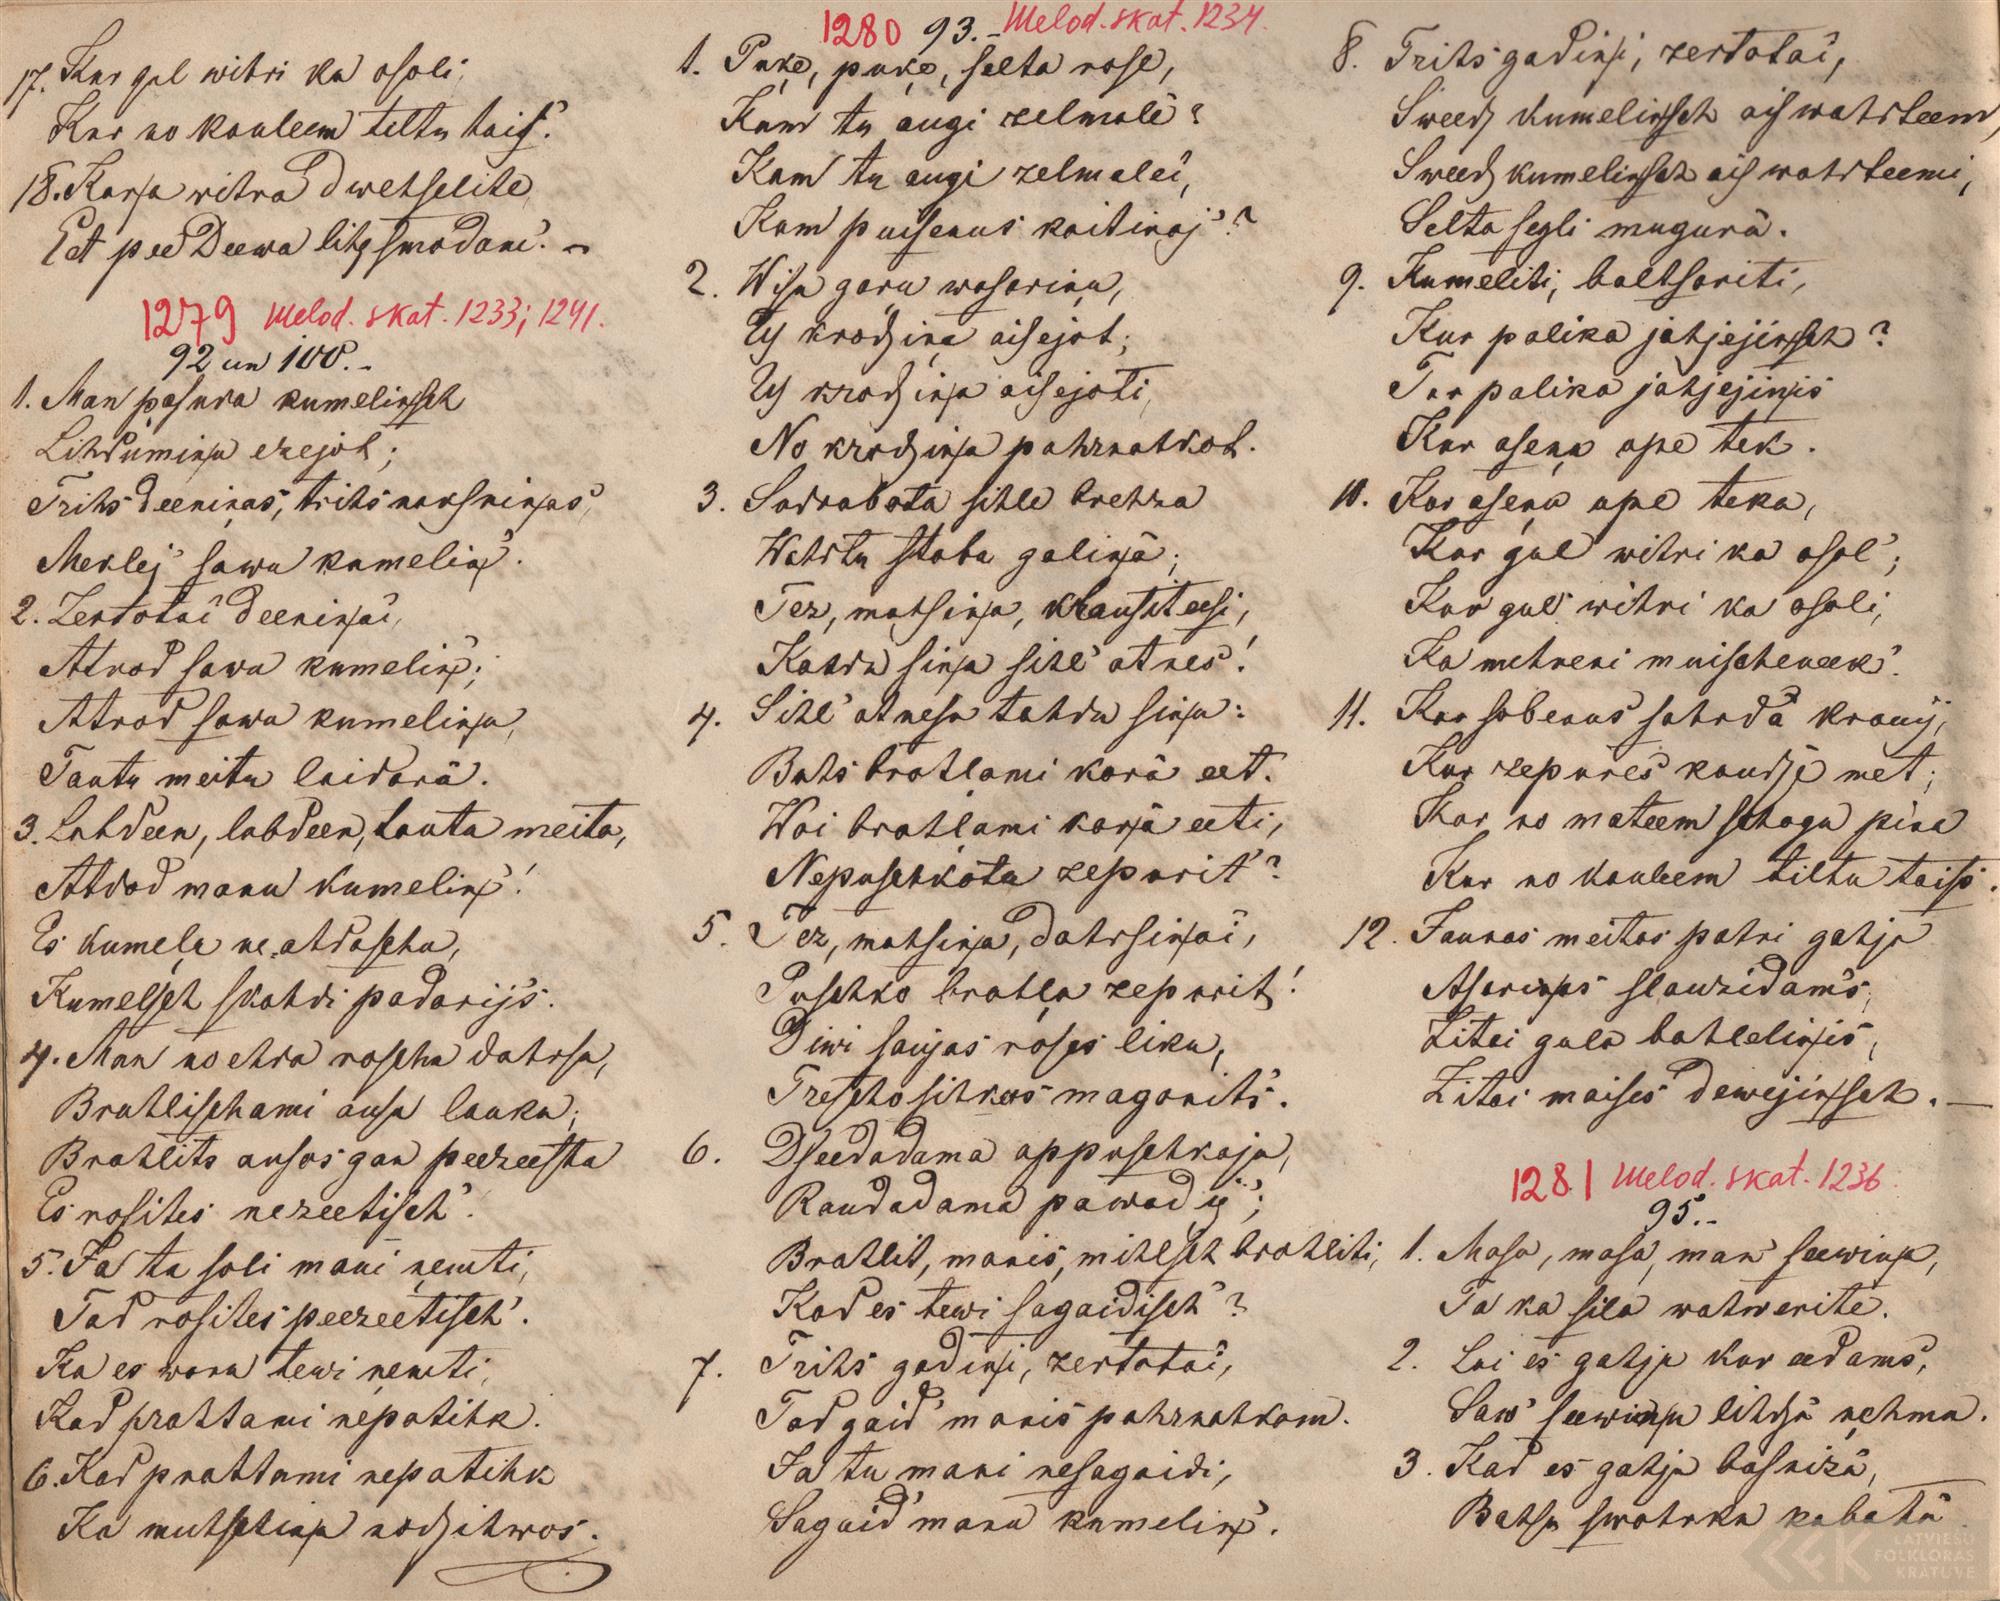 17. Kur gul wihri ka osoli,
Kur no kauleem tiltu tais'.
18. Karja wihra dwehselite
Eet pee Deewa lihgsmodam'. –
1279 Melod. skat. 1233; 1241.
92 un 100. –
1. Man pasuda kumelinsch
Lihdumina ezejot;
Trihs deeninas, trihs naksninas,
Meklej' sawu kumelin'.
2. Zertotai deeninai,
Atrod sawu kumelin';
Atrod sawu kumelinu,
Tautu meitu laidarä.
3. Labdeen, labdeen, tauta meita,
Atdod manu kumelin'!
Es kumela ne atdoschu,
Kumelsch skahdi padarijs.
4. Man no ehda roschu dahrsu,
Brahlischami ausu lauku;
Brahlits ausas gan peezeesta
Es rosites nezeetisch'.
5. Ja tu soli mani nemti,
Tad rosites peezeetisch'.
Ka es waru tewi nemti,
Kad prahtami nepatihk.
6. Kad prahtami nepatihk
Ka muhschina nodzihwos.
1280 93. – Melod. skat. 1234.
1. Puke, puke, selta rose,
Kam tu augi zelmale?
Kam tu augi zelmalei,
Kam puisenus kaitinaj'?
2. Wisu garu wasarinu,
Us krodzina aisejot;
Us krodzina aisejoti,
No krodzina pahrnahkot.
3. Sudrabota sihle brehza
Wahrtu staba galinä;
Tez, mahsina, klausiteesi,
Kahdu sinu sihl' atnes!
4. Sihl' atnesu tahdu sinu:
Buhs brahlami karä eet.
Wai brahlami karjä eeti,
Nepuschkota zepurit'?
5. Tez, mahsina, dahrsinai,
Puschko brahla zepurit!
Diwi saujas roses liku,
Trescho sihkas magonits.
6. Dseedadama appuschkoja,
Raudadama pawadij';
Brahlit, manis, mihlsch brahliti,
Kad es tewi sagaidisch'?
7. Trihs gadini, zertotai,
Tad gaid' manis pahrnahkam.
Ja tu mani nesagaidi,
Sagaid' manu kumelin'.
8. Trihs gadini, zertotai,
Sweedz kumelinsch ais wahrteem,
Sweedz kumelinsch ais wahrteemi,
Selta segli mugurä.
9. Kumeliti, baltsariti,
Kur palika jahjejinsch?
Tur palika jahjejinis
Kur asenu upe tek.
10. Kur asenu upe teka,
Kur gul' wihri ka osol';
Kur gul' wihri ka osoli,
Ka mehreni muischeneek'.
11. Kur sobenus sahrdä krauj,
Kur zepures kaudzē met;
Kur no mateem schogu pina
Kur no kauleem tiltu tais'.
12. Jaunas meitas pahri gahja
Asarinas slauzidam's;
Zitai gula bahlelinis,
Zitai maises dewejinsch. –
1281 Melod. skat. 1236.
95. –
1. Masa, masa, man' seewina,
Ta ka sila wahwerite.
2. Lai es gahju kur eedams,
Saw' seewinu lihdzä nehmu.
3. Kad es gahju basnizä,
Bahsu swahrku kabatä
LATVIEŠU
FOLKLORAS
KRĀTUVE